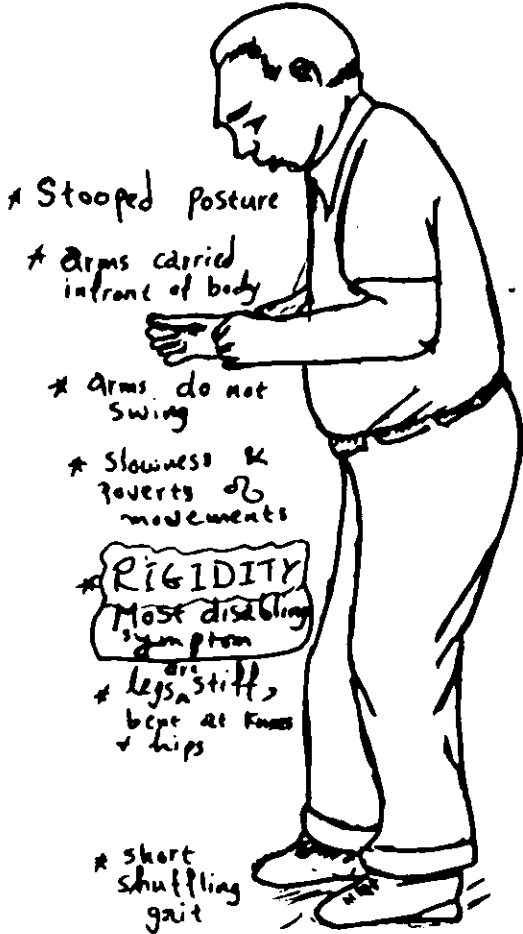 * Stooped posture
* arms carried
infront of body
* arms do not
swing
* Slowness &
Poverts of
movements
* RIGIDITY
Most disabling
symptom
* legs are stiff,
bent at knees
& hips
* short
shuffling
grit